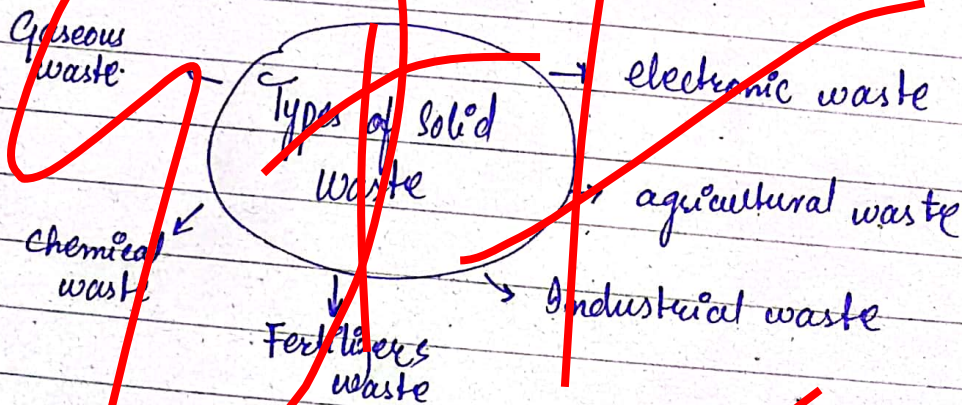 Gaseous
waste.
Types of Solid
waste
electronic waste
agricultural waste
Industrial waste
Fertilizers
waste
chemical
waste